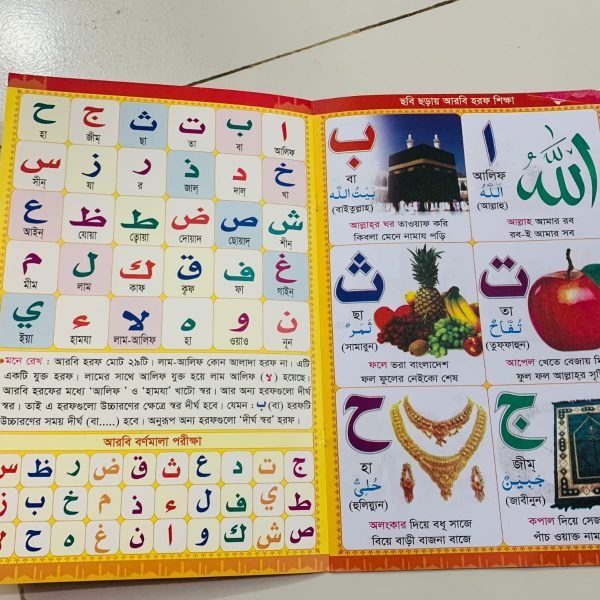 ا ب ت ث ج ح
আলিফ্ বা তা ছা জীম্ হা
خ د ذ ر ز س
খা দাল্ জাল্ র যা সীন্
ش ص ض ط ظ ع
শীন্ ছোয়াদ্ দোয়াদ ত্বোয়া যোয়া আইন্
غ ف ق ك ل م
গাইন্ ফা কৃফ কাফ লাম মীম
ن و ه لا ء ي
নূন্ ওয়াও হা লাম-আলিফ হামযা ইয়া
মনে রেখ : আরবি হরফ মোট ২৯টি। লাম-আলিফ কোন আলাদা হরফ না। এটি
একটি যুক্ত হরফ। লামের সাথে আলিফ যুক্ত হয়ে লাম আলিফ (لا) হয়েছে।
আরবি হরফের মধ্যে 'আলিফ ' ও 'হামযা' খাটো স্বর। আর অন্য হরফগুলো দীর্ঘ
স্বর। তাই এ হরফগুলো উচ্চারণের ক্ষেত্রে স্বর দীর্ঘ হবে। যেমন : ب (বা) হরফটি
উচ্চারণের সময় দীর্ঘ (বা.....) হবে। অনুরূপ অন্য হরফগুলো 'দীর্ঘ স্বর' হরফ।
আরবি বর্ণমালা পরীক্ষা
ج ت د ع ث ق ض ر ظ س
ط ي ف ل ء ذ م خ ب ز
ص ش ك و ا ن غ ه ح
ছবি ছড়ায় আরবি হরফ শিক্ষা
ا
আলিফ
اَللّٰهُ
(আল্লাহু)
الله
আল্লাহ আমার রব
রব-ই আমার সব
ب
বা
بَيْتُ اللّٰه
(বাইতুল্লাহ)
আল্লাহর ঘর তাওয়াফ করি
কিবলা মেনে নামায পড়ি
ت
তা
تُفَّاحٌ
(তুফ্ফাহুন)
আপেল খেতে বেজায় মি
ফুল ফল আল্লাহর সৃ
ث
ছা
ثَمَرٌ
(সামারুন)
ফলে ভরা বাংলাদেশ
ফল ফুলের নেইকো শেষ
ج
জীম্
جَبِيْنٌ
(জাবীনুন)
কপাল দিয়ে সেজ
পাঁচ ওয়াক্ত নাম
ح
হা
حُلِيٌّ
(হুলিয়্যুন)
অলংকার দিয়ে বধূ সাজে
বিয়ে বাড়ী বাজনা বাজে